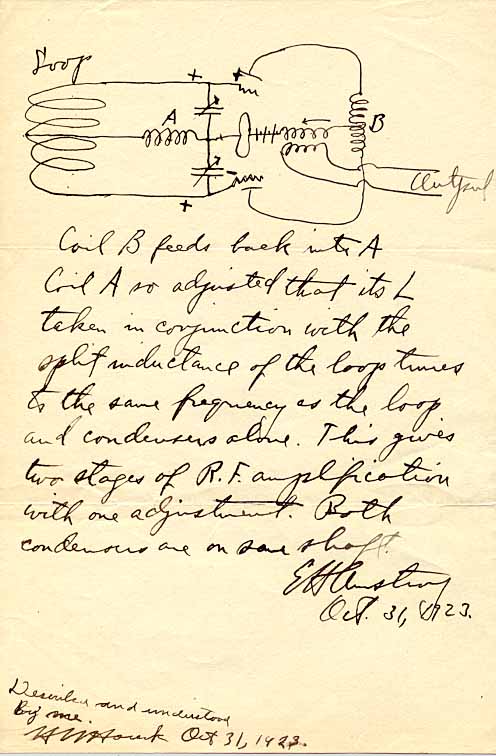 Loop
+
+
A
B
+
+
Output
Coil B feeds back into A
Coil A so adjusted that its L
taken in conjunction with the
split inductance of the loop tunes
to the same frequency as the loop
and condensers alone. This gives
two stages of R.F. amplification
with one adjustment. Both
condensers are on same shaft.
EH Armstrong
Oct. 31, 1923.
Described and understood
by me.
HW Houck Oct 31, 1923.